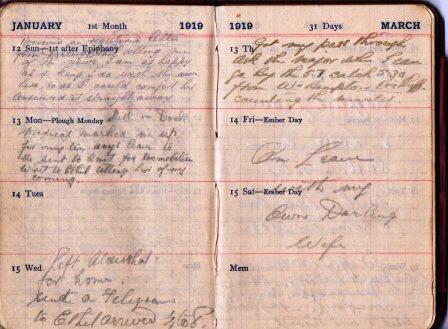 JANUARY 1st Month 1919
12 Sun—1st after Epiphany
Received a registered letter
from telling me
of the news. I am as happy
as a King, I do wish she were
here so as I could comfort her
answered it straight away
13 Mon—Plough Monday
Medical marked me up
for my ten days leave to
be sent to Unit for Demobilise
Wrote to Ethel telling her of my
coming.
14 Tues
15 Wed Left Aldershot
for home.
send a Telegram
to Ethel arrived
1919 31 Days MARCH
13 Th Got my pass through
ask the Major when I can
go by the 5.7 catch 5.30
from W-hampton
counting the minutes
14 Fri—Ember Day
On Leave
15 Sat—Ember Day
with my
Own Darling
Wife
Mem